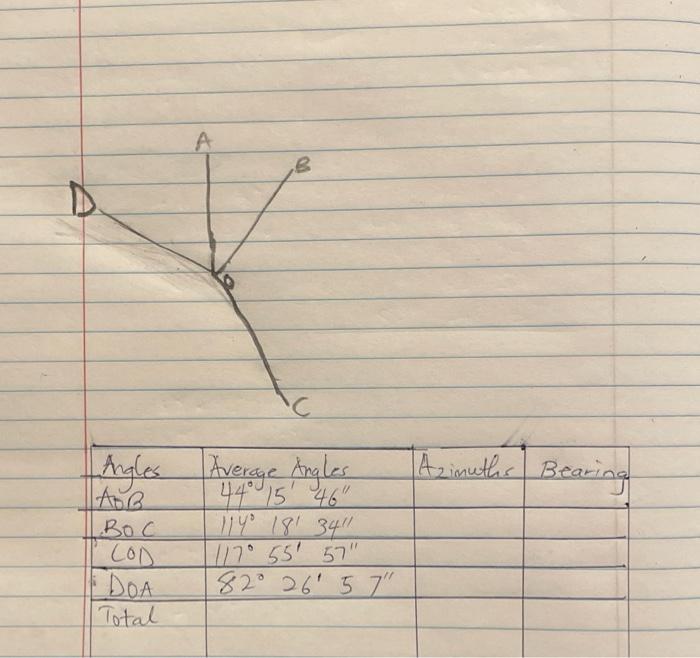 A
B
D
O
C
Angles Average Angles Azimuths Bearing
AOB 44° 15' 46"
BOC 114° 18' 34"
COD 117° 55' 57"
DOA 82° 26' 57"
Total